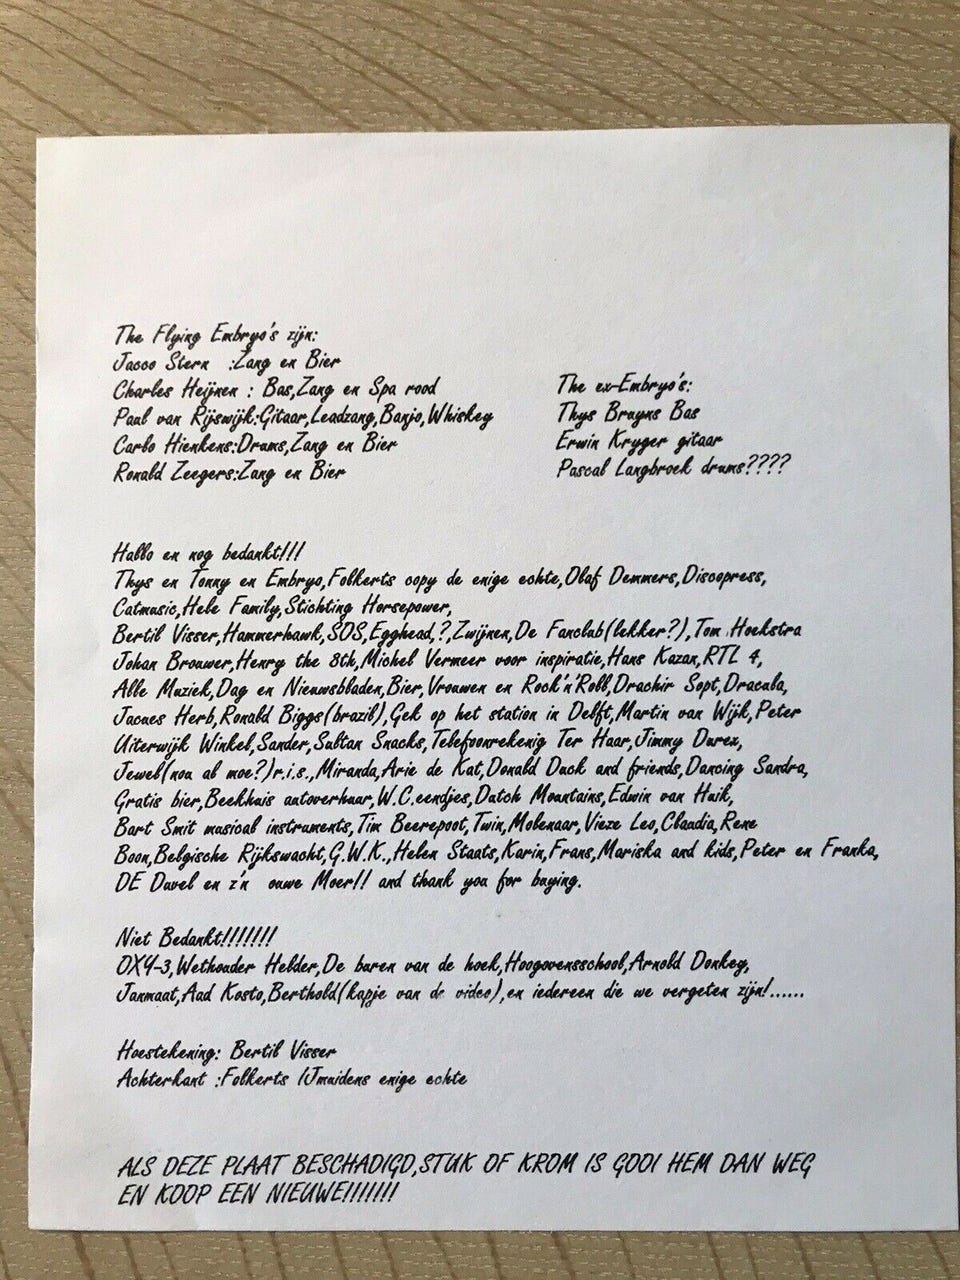 The Flying Embryo's zijn:
Jacco Stern :Zang en Bier
Charles Heijnen : Bas,Zang en Spa rood
Paul van Rijswijk:Gitaar,Leadzang,Banjo,Whiskey
Carlo Hienkens:Drums,Zang en Bier
Ronald Zeegers:Zang en Bier
The ex-Embryo's:
Thys Bruyns Bas
Erwin Kryger gitaar
Pascal Langbroek drums????
Hallo en nog bedankt!!!
Thys en Tonny en Embryo,Folkerts copy de enige echte,Olaf Demmers,Discopress,
Catmusic,Hele Family,Stichting Horsepower,
Bertil Visser,Hammerhawk,SOS,Egghead,?,Zwijnen,De Fanclub(lekker?),Tom Hoekstra
Johan Brouwer,Henry the 8th,Michel Vermeer voor inspiratie,Hans Kazan,RTL 4,
Alle Muziek,Dag en Nieuwsbladen,Bier,Vrouwen en Rock'n'Roll,Drachir Sopt,Dracula,
Jacues Herb,Ronald Biggs(brazil),Gek op het station in Delft,Martin van Wijk,Peter
Uiterwijk Winkel,Sander,Sultan Snacks,Telefoonrekenig Ter Haar,Jimmy Durex,
Jewel(nou al moe?)r.i.s.,Miranda,Arie de Kat,Donald Duck and friends,Dancing Sandra,
Gratis bier,Beekhuis autoverhuur,W.C.eendjes,Dutch Mountains,Edwin van Huik,
Bart Smit musical instruments,Tim Beerepoot,Twin,Molenaar,Vieze Leo,Claudia,Rene
Boon,Belgische Rijkswacht,G.W.K.,Helen Staats,Karin,Frans,Mariska and kids,Peter en Franka,
DE Duvel en z'n ouwe Moer!! and thank you for buying.
Niet Bedankt!!!!!!!
OXY-3,Wethouder Helder,De buren van de hoek,Hoogovensschool,Arnold Donkey,
Janmaat,Aad Kosto,Berthold(kapje van de video),en iedereen die we vergeten zijn!......
Hoestekening: Bertil Visser
Achterkant :Folkerts IJmuidens enige echte
ALS DEZE PLAAT BESCHADIGD,STUK OF KROM IS GOOI HEM DAN WEG
EN KOOP EEN NIEUWE!!!!!!!